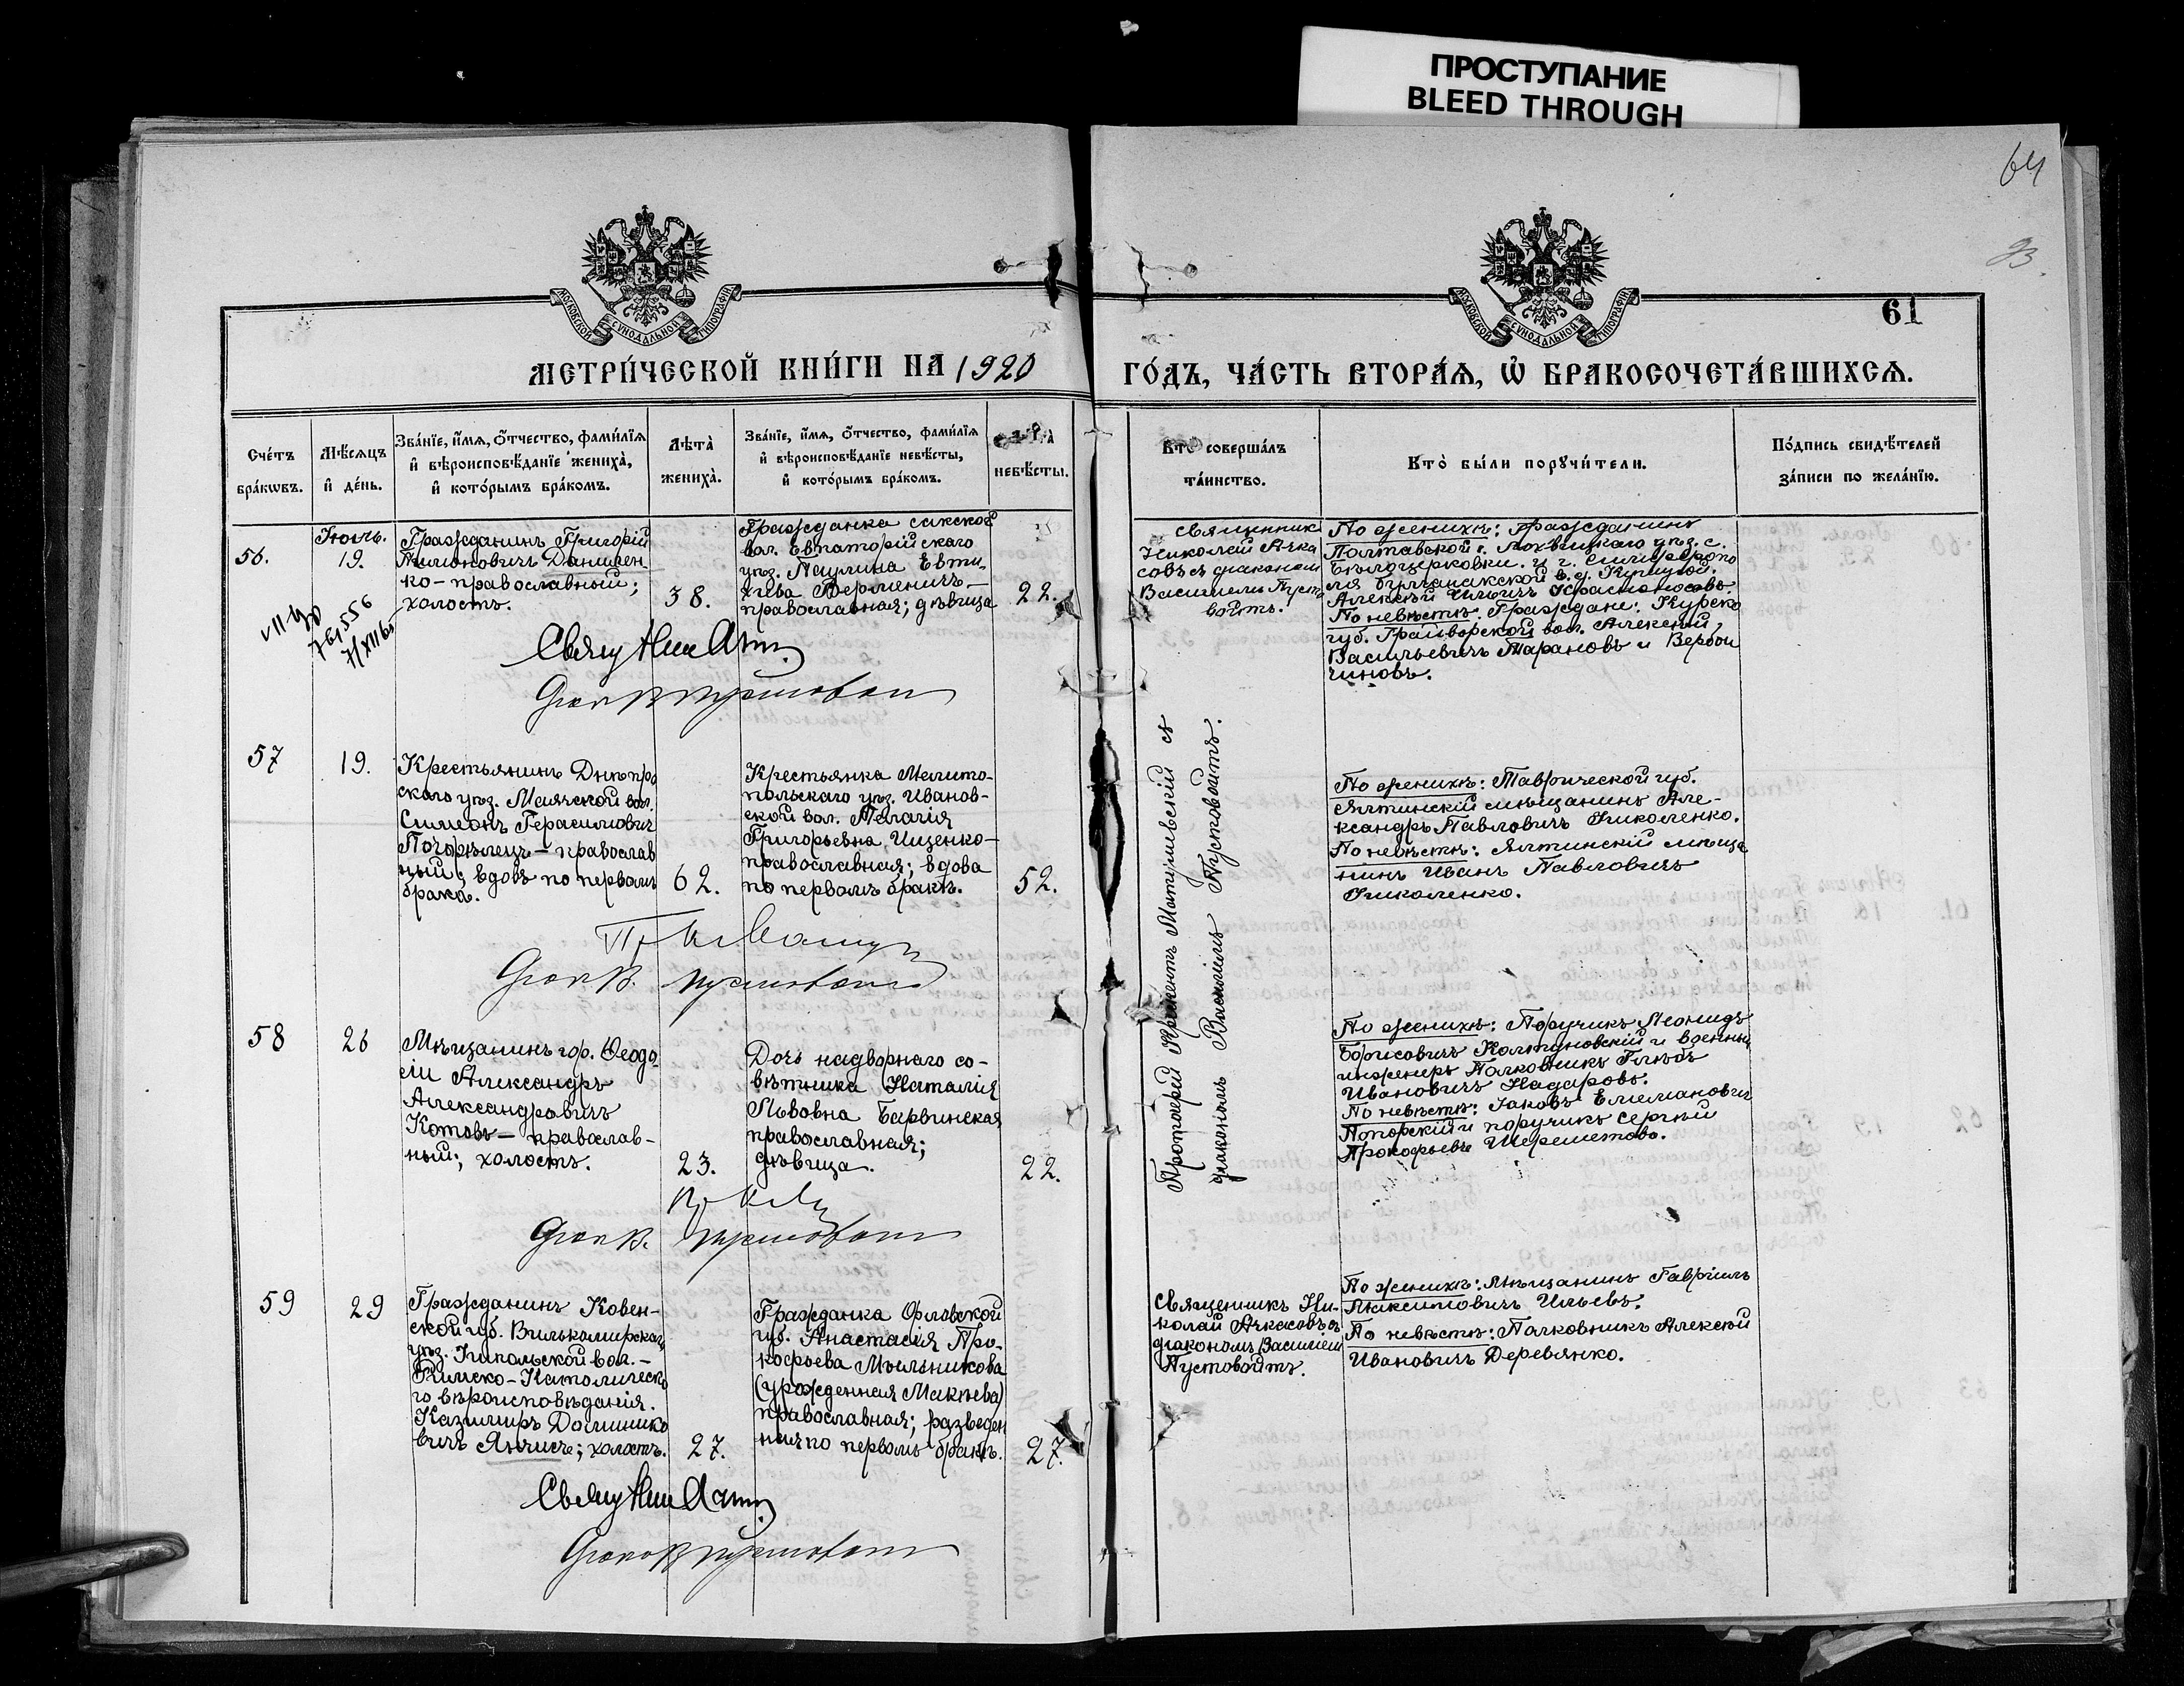 ПРОСТУПАНИЕ
BLEED THROUGH
64
93.
61
МОСКОВСКОЙ СѴНОДАЛЬНОЙ ТИПОГРАФІИ
МОСКОВСКОЙ СѴНОДАЛЬНОЙ ТИПОГРАФІИ
МЕТРИ́ЧЕСКОЙ КНИ́ГИ НА 1920
ГО́ДЪ, ЧА́СТЬ ВТОРА́Ѧ, Ѡ҆ БРАКОСОЧЕТА́ВШИХСѦ.
Сче́тъ
бра́кѡвъ.
Мѣ́сѧцъ
и҆ де́нь.
Зва́нїе, и҆́мѧ, ѻ҆́тчество, фами́лїѧ
и҆ вѣроисповѣ́данїе жениха̀,
и҆ кото́рымъ бра́комъ.
Лѣта̀
жениха̀.
Зва́нїе, и҆́мѧ, ѻ҆́тчество, фами́лїѧ
и҆ вѣроисповѣ́данїе невѣ́сты,
и҆ кото́рымъ бра́комъ.
невѣ́сты.
Кто̀ соверша́лъ
та́инство.
Кто̀ бы́ли порꙋчи́тели.
По́дпись свидѣ́телей
за́писи по жела́нїю.
56.
Іюль.
19.
Гражданинъ Григорій
Филимоновичъ Данилен
ко – православный;
холостъ.
38.
Гражданка сакской
вол. Евпаторійскаго
уѣз. Паулина Евти-
хіева Верменичъ –
православная; дѣвица
22.
Священник
Николай Ачка
совъ съ діаконом
Василіемъ Пусто
войтъ.
По женихѣ: Гражданинъ
Полтавской г. Лохвицкаго уѣз. с.
Бѣлоцерковки. и г. Симферопо
ля булганакской в. д.
Алексѣй Ильичъ
По невѣстѣ: Граждане: Курско
губ. Грайворской вол. Алексей
Васильевичъ Тарановъ и Вербов
чиновъ.
57
19.
Крестьянинъ Днѣпро
скаго уѣз. Маячской вол.
Симеонъ Герасимовичъ
Погорѣлецъ – православ
ный; вдовъ по первомъ
бракѣ.
62.
Крестьянка Мелито-
польскаго уѣз. Иванов-
ской вол. Пелагія
Григорьевна Ищенко –
православная; вдова
по первомъ бракѣ.
52.
Протоіерей Матушевскій съ
діакономъ Василіемъ Пустовойтъ.
По женихѣ: Таврической губ.
Ялтинскій мѣщанинъ Але-
ксандръ Павловичъ Николенко.
По невѣстѣ: Ялтинскій мѣща
нинъ Иванъ Павловичъ
Николенко.
58
26
Мѣщанинъ гор. Ѳеодо-
сіи Александръ
Александровичъ
Котовъ – православ-
ный; холостъ.
23.
Дочь надворнаго со-
вѣтника Наталія
Львовна Барвинская
православная;
дѣвица.
22.
По женихѣ: Поручикъ Леонидъ
Борисовичъ Колтуновскій и военный
инженеръ Полковникъ Глѣбъ
Ивановичъ Надаровъ.
По невѣстѣ: Іаковъ
и поручикъ Сергѣй
Прокофьевъ Шереметово.
59
29
Гражданинъ Ковен-
ской губ. Вилькомирскаго
уѣз. вол. –
Римско-Католическо
го вѣроисповѣданія.
Казимиръ Доминико
вичъ Янчисъ; холостъ.
27.
Гражданка Орловской
губ. Анастасія Про-
кофьева Мыльникова
(урожденная Макѣева)
православная; разведен
ная по первомъ бракѣ.
27.
Священникъ Ни-
колай Ачкасовъ съ
діакономъ Василіем
Пустовойтъ.
По женихѣ: Мѣщанинъ Гавріилъ
Максимовичъ Ильевъ.
По невѣстѣ: Полковникъ Алексѣй
Ивановичъ Деревянко.